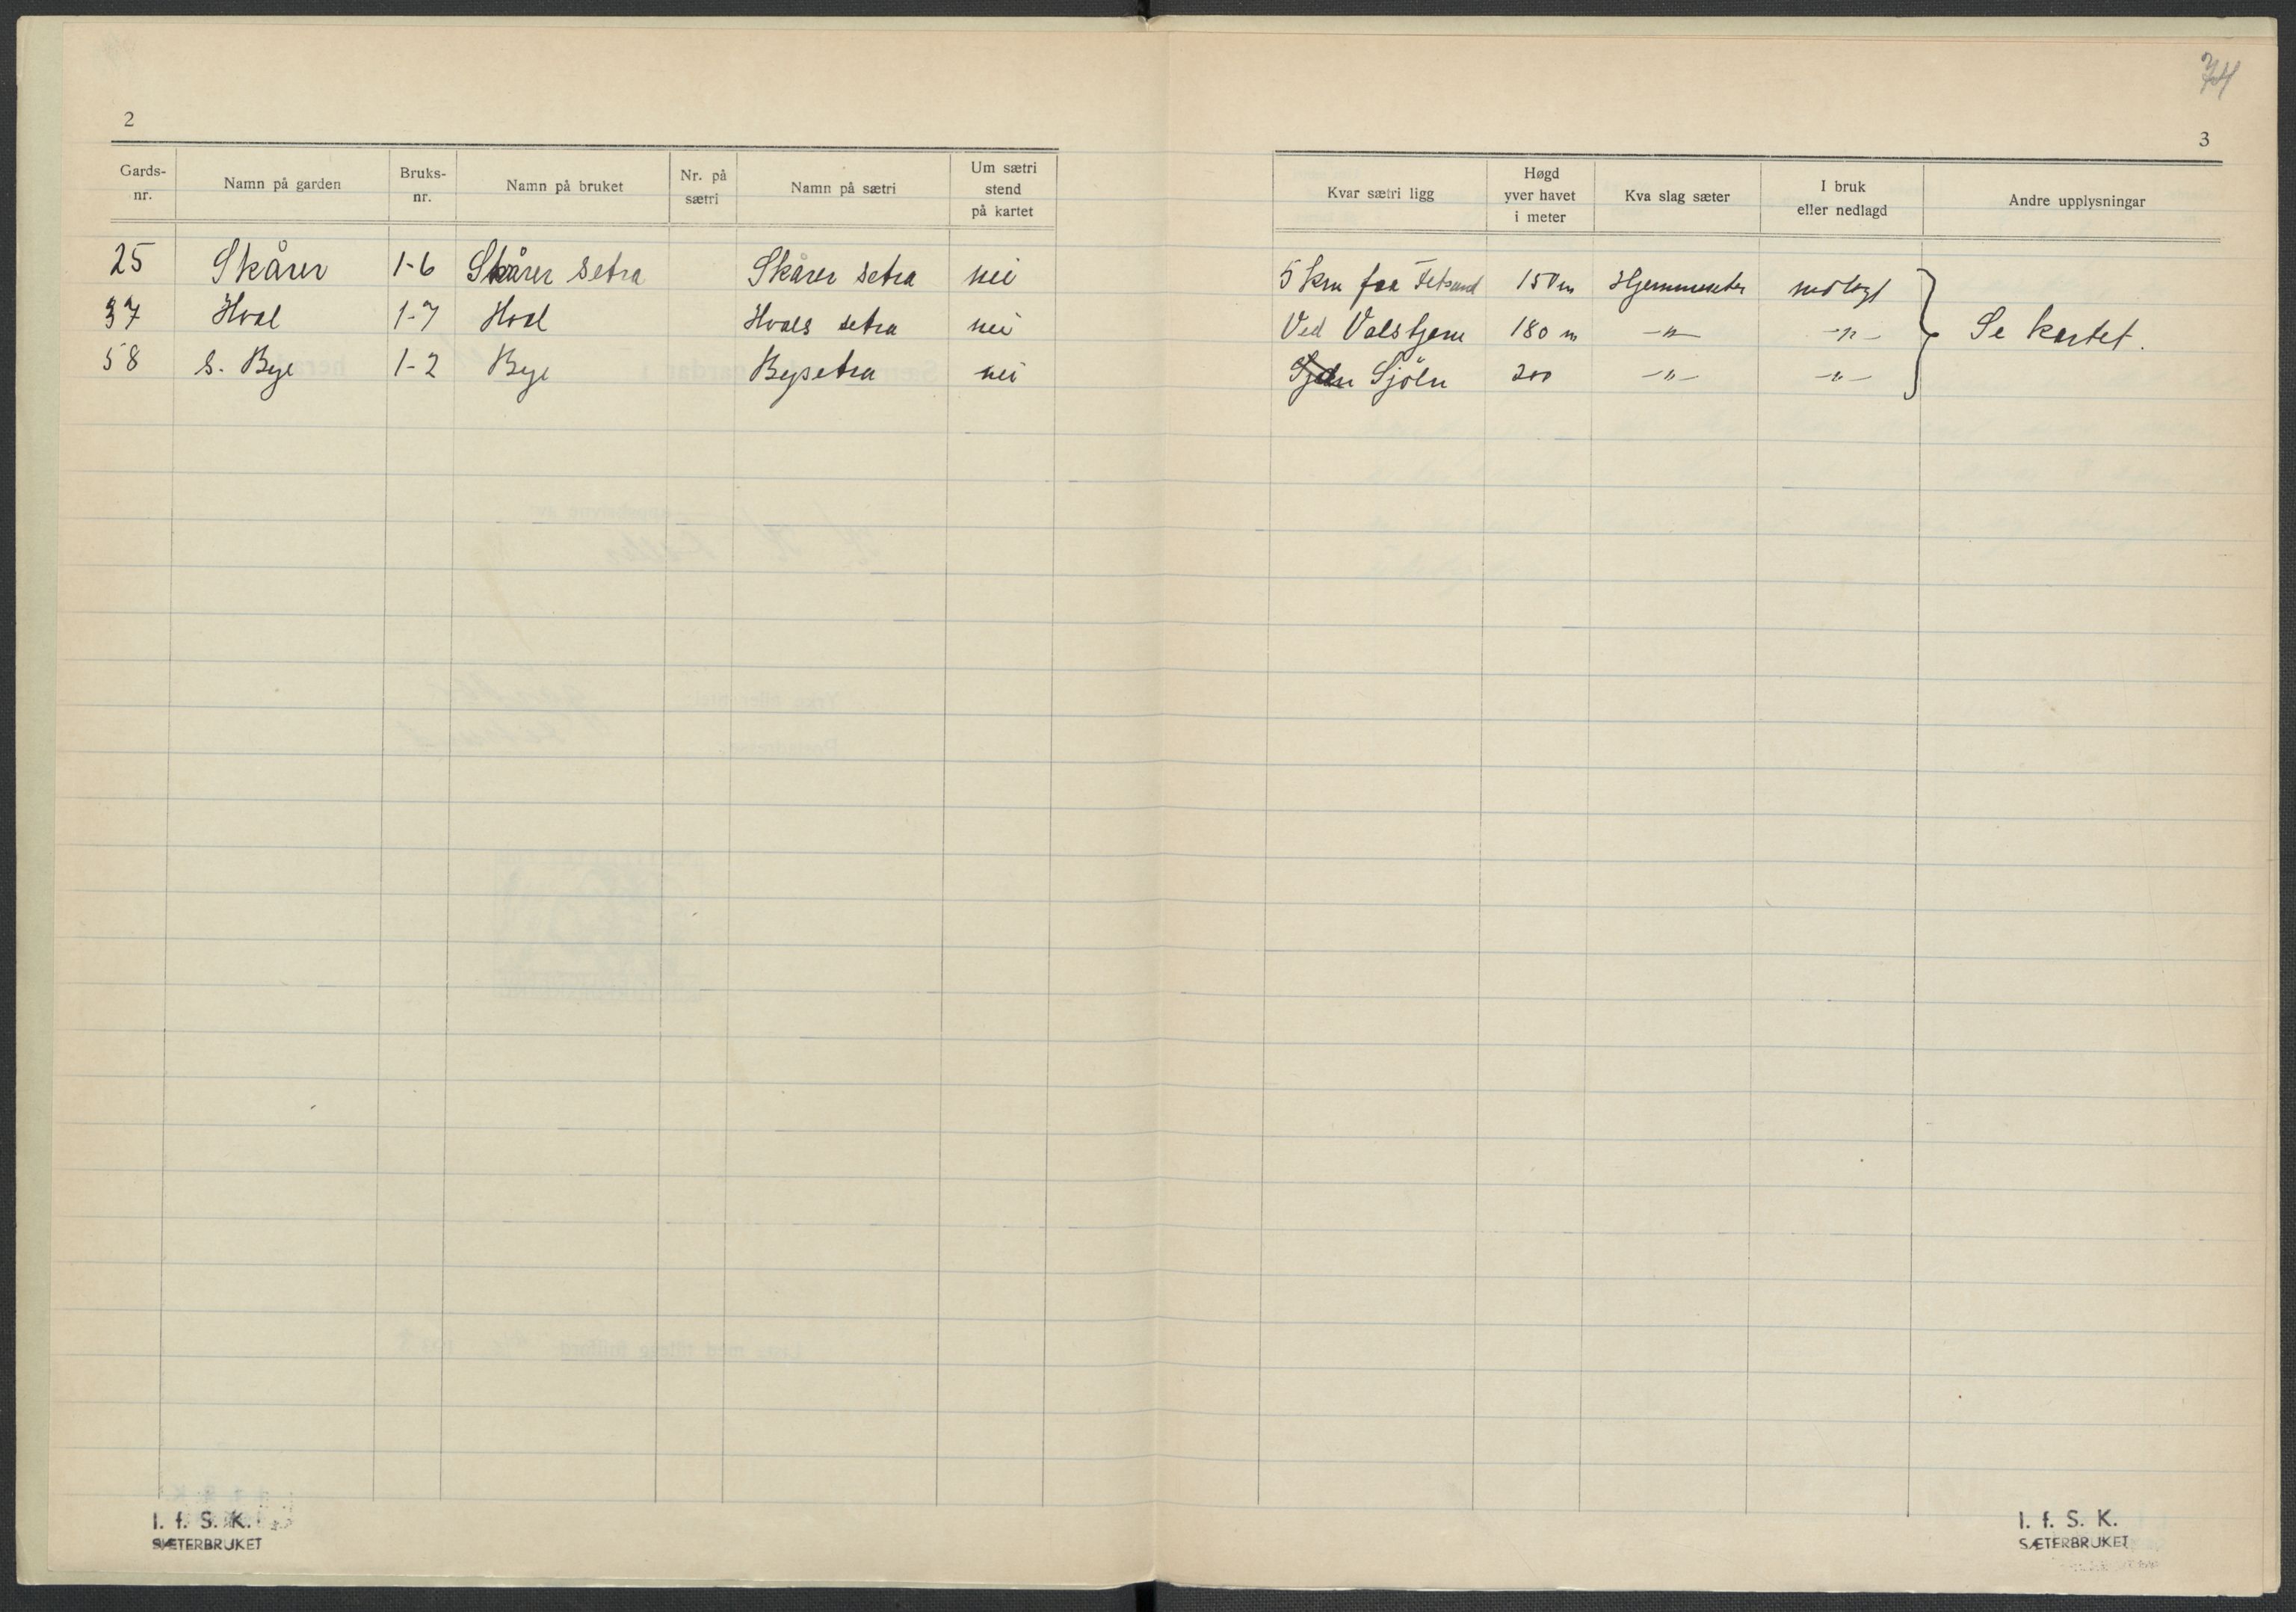 74
2
3
Gards-nr. Namn på garden Bruks-nr. Namn på bruket Nr. på sætri Namn på sætri Um sætri stend på kartet Kvar sætri ligg Høgd yver havet i meter Kva slag sæter I bruk eller nedlagd Andre upplysningar
25 Skårer 1-6 Skårer setra Skårer setra nei 5 km fra Fetsund 150 m Hjemmeseter nedlagt
37 Hval 1-7 Hval Hvals setra nei Ved Valstjern 180 m -"- -"- Se kartet.
58 S. Bye 1-2 Bye Bysetra nei Sjöln 200 -"- -"-
I. f. S. K.
SÆTERBRUKET
I. f. S. K.
SÆTERBRUKET